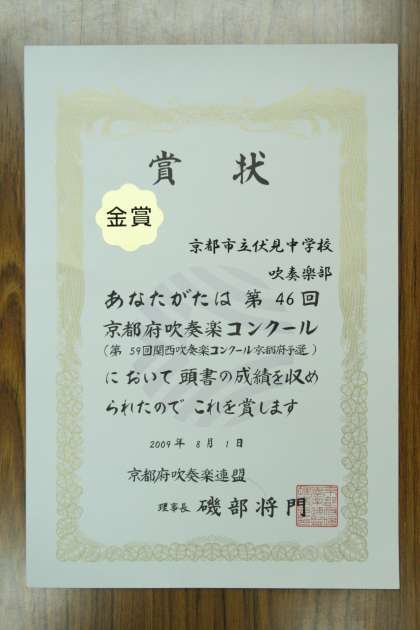 賞状
金賞
京都市立伏見中学校
吹奏楽部
あなたがたは 第 46 回
京都府吹奏楽コンクール
(第 59回関西吹奏楽コンクール京都府予選)
において頭書の成績を収め
られたので これを賞します
2009 年 8 月 1 日
京都府吹奏楽連盟
理事長 磯部将門